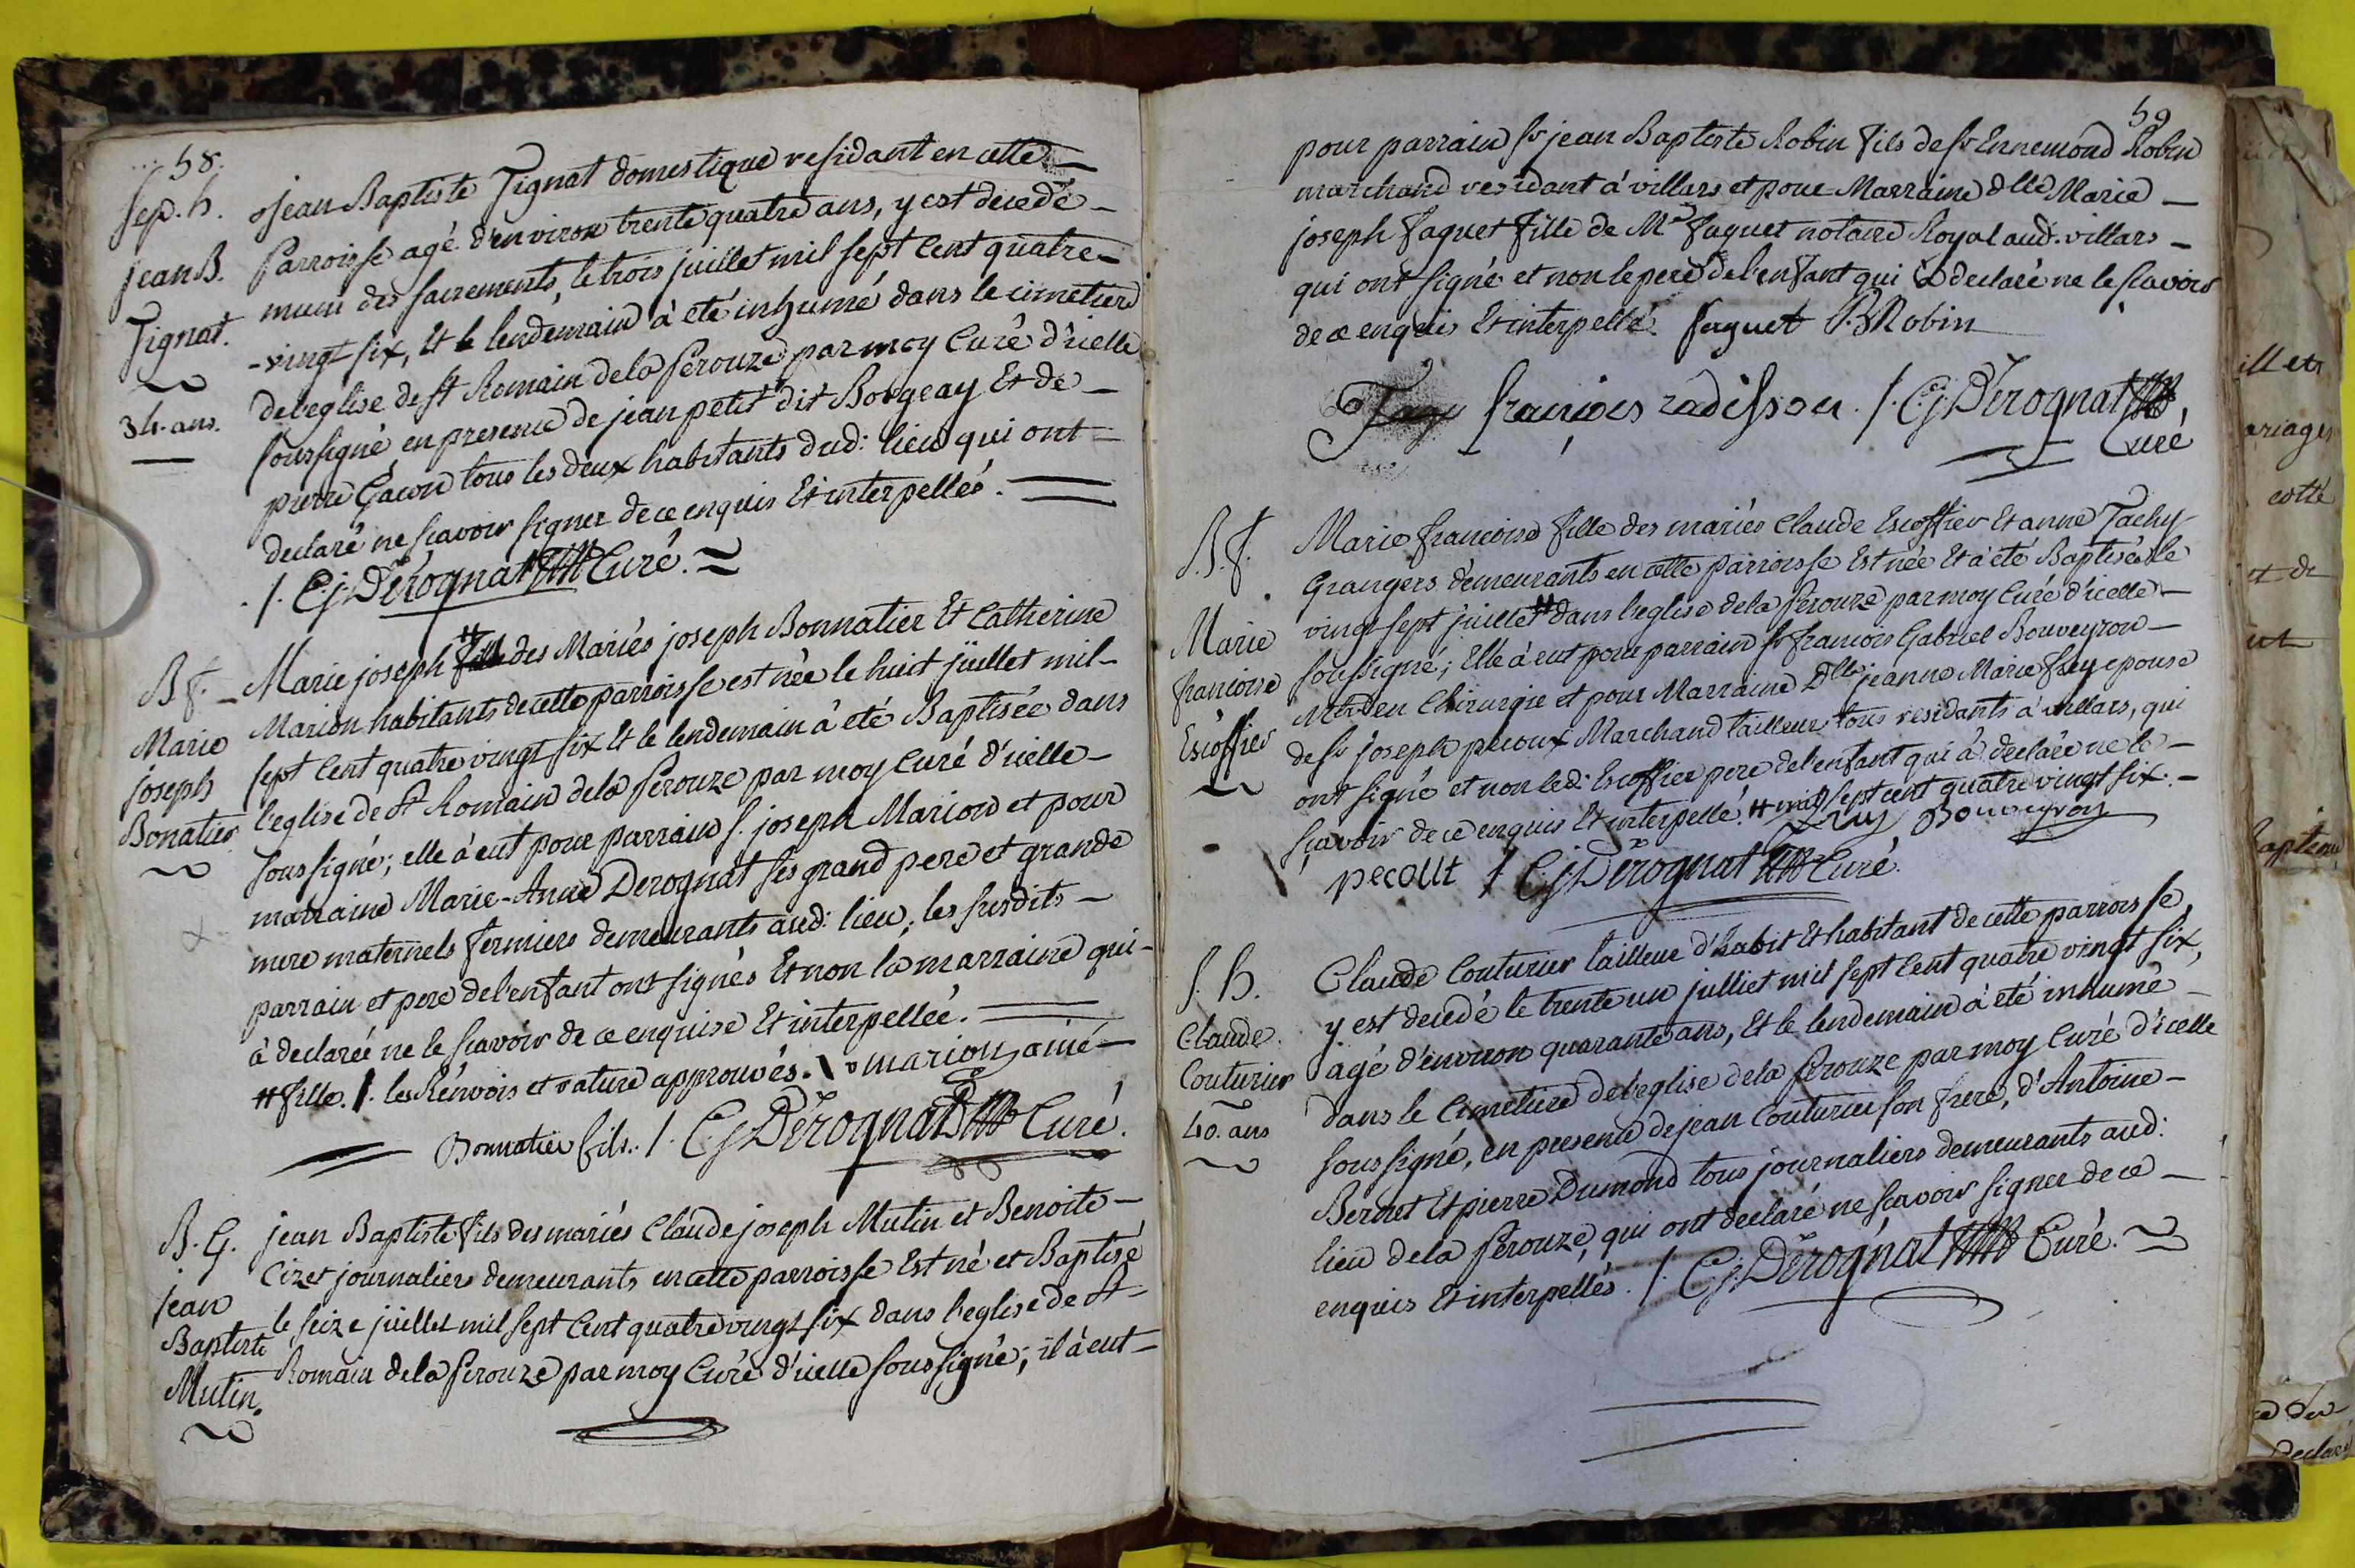 58.
Sep. h.
jean B.
Tignat.
34. ans.
jean Baptiste Tignat domestique residant en cette
Parroisse agé d'environ trente quatre ans, y est decedé
muni des sacrements, le trois juillet mil sept cent quatre
-vingt six, Et le lendemain à eté inhumé dans le cimetiere
de l'eglise de St Romain de la Perouze par moy Curé d'icelle
soussigné en presence de jean petit dit Borgeay Et de
pierre Gacon tous les deux habitants dud: lieu qui ont
declaré ne sçavoir signer de ce enquis Et interpellés.
./. C.j. Dérognat Curé.
B f.
Marie
joseph
Bonatier
Marie joseph # des Mariés joseph Bonnatier Et Catherine
Marion habitants de cette parroisse est née le huit juillet mil
sept cent quatre vingt six Et le lendemain à eté Baptisée dans
l'eglise de St Romain de la Perouze par moy Curé d'icelle
soussigné; elle à eut pour parrain s. joseph Marion et pour
marraine Marie-Anne Derognat ses grand pere et grande
mere maternels fermiers demeurants aud: lieu; les susdits
parrain et pere de l'enfant ont signés Et non la marraine qui
à declarée ne le sçavoir de ce enquise Et interpellée.
# fille. /. les Renvois et rature approuvés. marion ainé
Bonnatier fils. /. C.j. Dérognat Curé.
B. G.
jean
Baptiste
Mutin.
jean Baptiste fils des mariés Claude joseph Mutin et Benoite
Cizet journaliers demeurants en cette parroisse Est né et Baptisé
le seize juillet mil sept Cent quatre vingt six dans l'eglise de St
Romain de la Perouze par moy Curé d'icelle soussigné; il à eut
59
pour parrain Sr jean Baptiste Robin fils de Sr Ennemond Robin
marchand residant à villars et pour Marraine dlle Marie
joseph faguet fille de Me faguet notaire Royal aud. villars
qui ont signé et non le pere de l'enfant qui a declaré ne le sçavoir
de ce enquis Et interpellé. faguet B. Robin
françois radisson. /. C.j. Dérognat
Curé
B. f.
Marie
francoise
Escoffier
Marie francoise fille des mariés Claude Escoffier Et anne Tachy
Grangers demeurants en cette parroisse Est née Et à eté Baptisée le
vingt sept juillet # dans l'eglise de la Perouze par moy Curé d'icelle
soussigné; Elle à eut pour parrain Sr francois Gabriel Bouveyron
Mtre en Chirurgie et pour Marraine Dlle jeanne Marie frey epouse
de Sr joseph pecoux Marchand tailleur tous residants à villars, qui
ont signé et non led: Escoffier pere de l'enfant qui à declaré ne le
sçavoir de ce enquis Et interpellé. # mil sept cent quatre vingt six.
frey Bouveyron
pecout /. C.j. Dérognat Curé.
S. h.
Claude
Couturier
40. ans
Claude Couturier tailleur d'habit Et habitant de cette parroisse,
y est decedé le trente un julliet mil sept Cent quatre vingt six,
agé d'environ quarante ans, Et le lendemain à eté inhumé
dans le Cimetiere de l'eglise de la Perouze par moy Curé d'icelle
soussigné, en presence de jean Couturier son frere, d'Antoine
Bernet Et pierre Dumond tous journaliers demeurants aud:
lieu de la Perouze, qui ont declaré ne sçavoir signer de ce
enquis Et interpellés. /. C.j. Dérognat Curé.